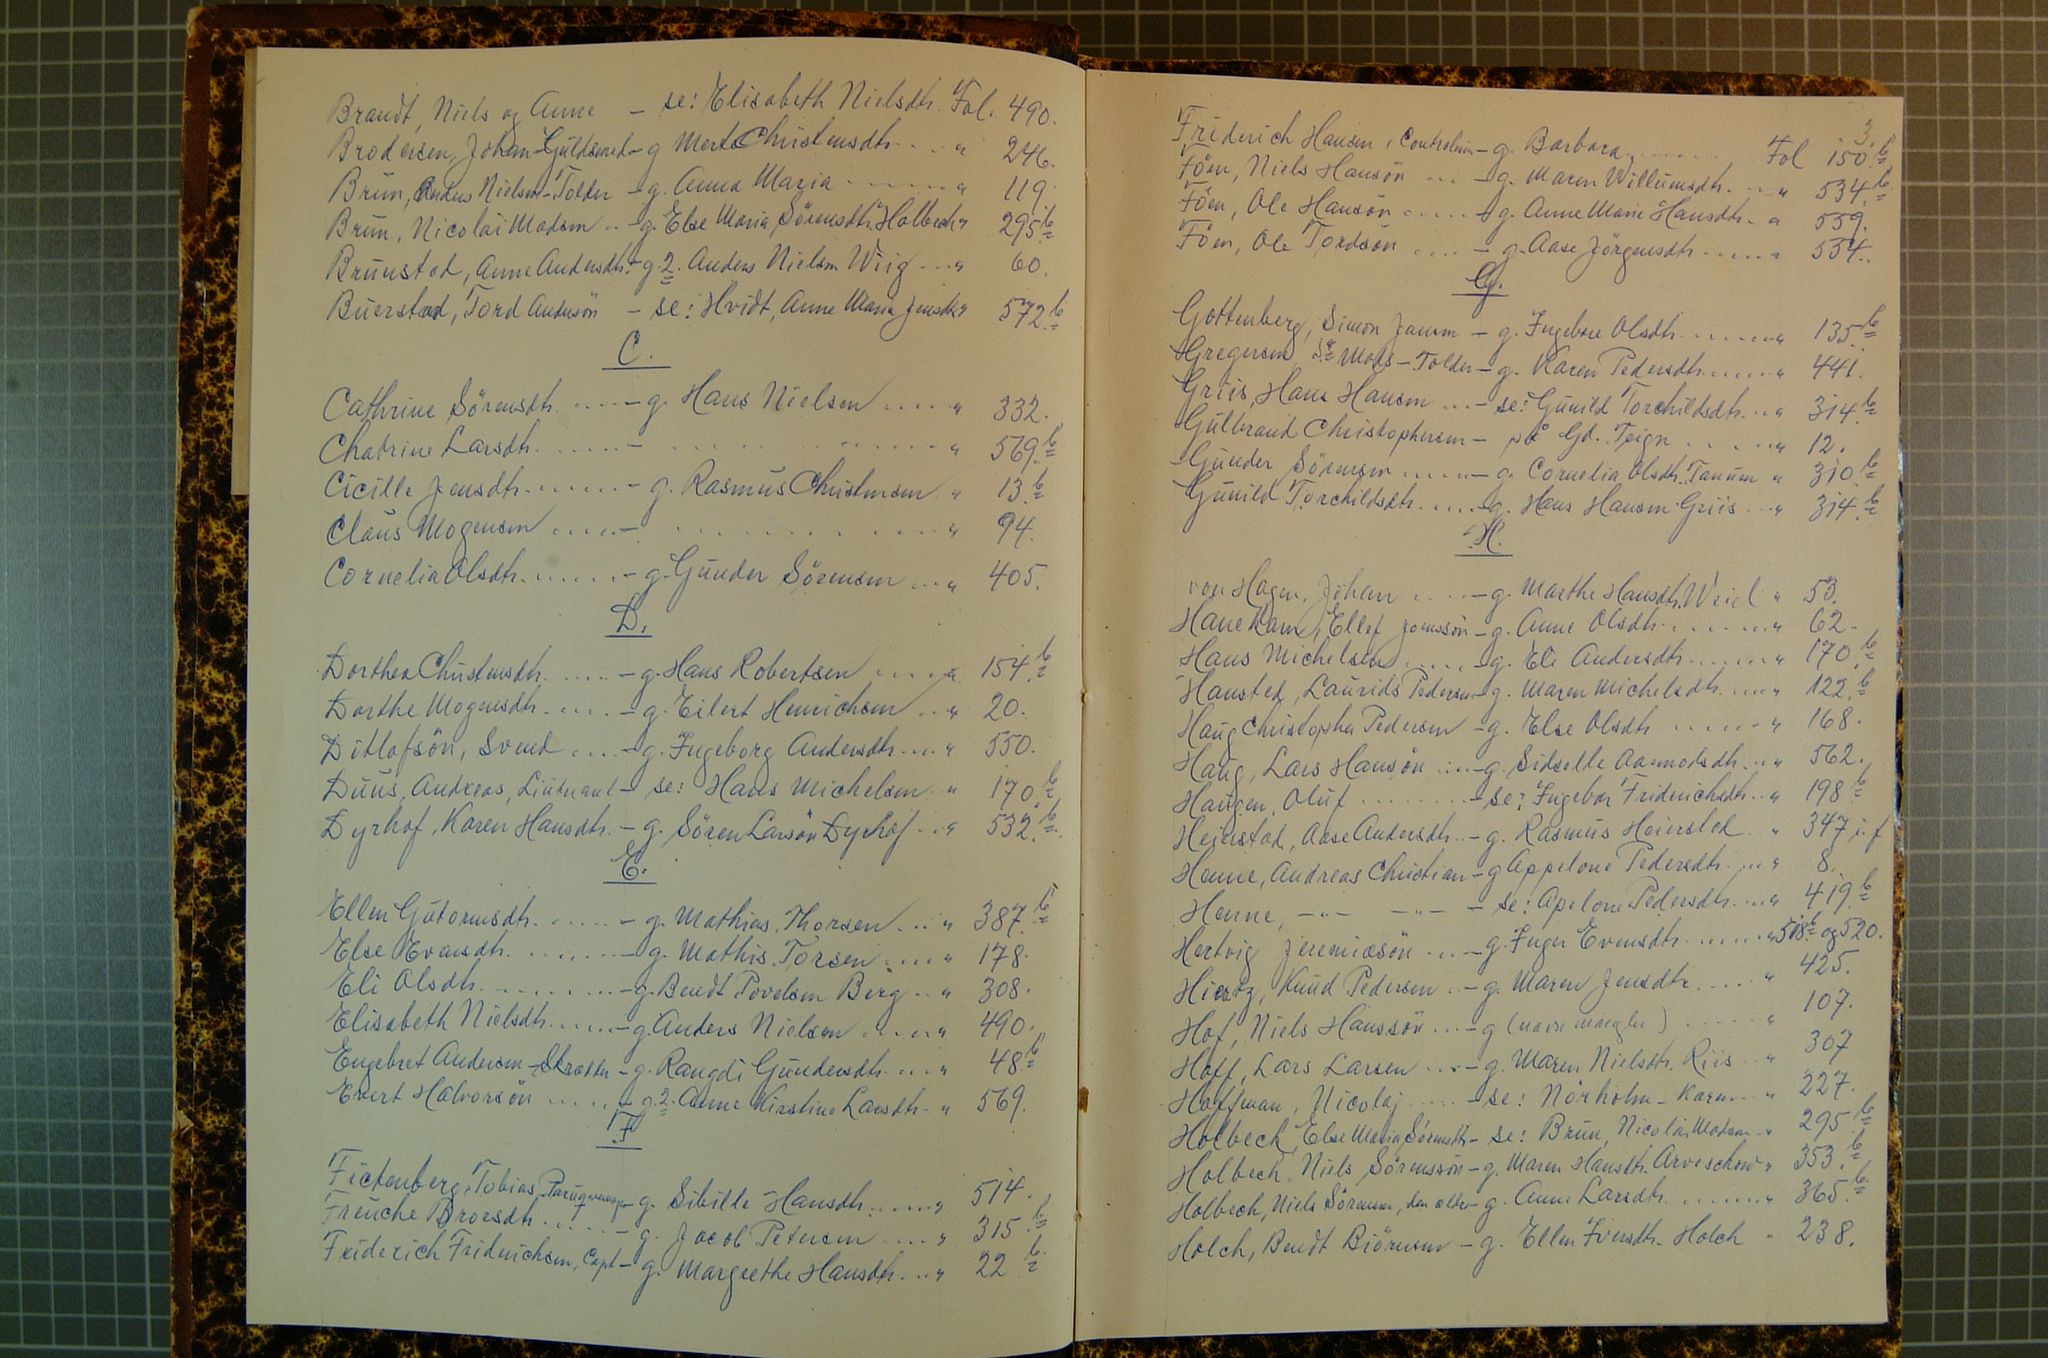 Brandt, Niels og Anne - se: Elisabeth Nielsdtr. Fol. 490.
Brodersen, Johan - Guldsmed - g Merte Christensdtr. .... " 246.
Brun, Anders Nielsen - Tolder - g. Anna Maria ........ " 119.
Brun, Nicolai Madsen .. - g. Else Maria Sörensdtr. Holbech " 295 b
Brunstad, Anne Andersdtr. - g. 2. Anders Nielsen Wiig ... " 60.
Buerstad, Tord Andersön - se: Hvidt, Anne Maria Jensdtr " 572. b
C.
Cathrine Sörensdtr. ..... - g. Hans Nielsen ..... " 332.
Chatrine Larsdtr. ..... - .......... " 569. b
Cicille Jensdtr. ...... - g. Rasmus Christensen . " 13. b
Claus Mogensen ..... - .......... " 94.
Cornelia Olsdtr. ...... - g. Gunder Sörensen ... " 405.
D.
Dorthea Christensdtr. ..... - g. Hans Robertsen ..... " 154. b
Dorthe Mogensdtr. .... - g. Eilert Henrichsen ... " 20.
Ditlofsön, Svend .... - g. Ingeborg Andersdtr. ... " 550.
Duus, Andreas, Liutnant - se: Hans Michelsen .. " 170. b
Dyrhof, Karen Hansdtr. - g. Sören Larsön Dyrhof ... " 532. b
E.
Ellen Gutormsdtr. ..... - g. Mathias Thorsen ... " 387. b
Else Evensdtr. ....... - g. Mathis Torsen .... " 178.
Eli Olsdtr. ........ - g. Bendt Povelsen Berg .. " 308.
Elisabeth Nielsdtr. ..... - g. Anders Nielsen ..... " 490.
Engebret Andersen - Skrædder - g. Rangdi Gundersdtr. ... " 48 b
Evert Halvorsön ..... - g. 2. Anne Kirstine Larsdtr. . " 569.
F
Fictenberg, Tobias, - g. Sibille Hansdtr. ..... " 514.
Freuche Broersdtr. ..... - g. Jacob Petersen .... " 315. b
Friderich Friderichsen, Capt - g. Margrethe Hansdtr. ... " 22 b
3.
Friderich Hansen, - g. Barbara ....... Fol 150. b
Föen, Niels Hansön ... - g. Maren Willumsdtr. ... " 534. b
Föen, Ole Hansön ...... - g. Anne Marie Hansdtr. . " 559.
Föen, Ole Tordsön .... - g. Aase Jörgensdtr. ..... " 554.
G.
Gottenberg, Simon Jansen - g. Ingebore Olsdtr. ....... " 135. b
Gregersen Sr Mads - Tolder - g. Karen Pedersdtr. ..... " 441.
Griis, Hans Hansen ... - se: Gunild Torchildsdtr. .. " 314. b
Gulbrand Christophersen - på Gd. Teign ...... " 12.
Gunder Sörensen ....... - g. Cornelia Olsdtr. Tanum " 310. b
Gunild Torchildsdtr. ..... - g. Hans Hansen Griis ... " 314. b
H.
von Hagen, Johan ..... - g. Marthe Hansdtr. Weiel " 53.
Hanekam, Ellef Joenssön - g. Anne Olsdtr. ....... " 62.
Hans Michelsen ..... - g. Eli Andersdtr. ...... " 170. b
Hansted, Laurids Pedersen - g. Maren Michelsdtr. .... " 122. b
Haug Christopher Pedersen - g. Else Olsdtr ...... " 168.
Haug, Lars Hansön ... - g. Sidselle Aamodsdtr. .. " 562.
Haugen, Oluf ........ - se: Ingebor Friderichsdtr. .. " 198 b
Heierstad, Aase Andersdtr. .. - g. Rasmus Heiersted .. " 347 i. f
Henne, Andreas Christian - g Appelone Pedersdtr. ... " 8.
Henne, - " - - " - - se: Apelone Pedersdtr. ... " 419. b
Hertvig Jeremiæsön ... - g. Inger Evensdtr. ...... " 518 b og 520.
Hiertz, Knud Pedersen .. - g. Maren Jensdtr. ..... " 425.
Hof, Niels Hanssön ... - g (navn mangler) ..... " 107.
Hoff, Lars Larsen .... - g. Maren Nielsdtr. Riis .. " 307
Hoffman, Nicolaj ..... - se: Nörholm - Karen .. " 227.
Holbech, Else Maria Sörensdtr. - se: Brun, Nicolai Madsen - " 295. b
Holbech, Niels Sörenssön - g. Maren Hansdtr. Arveschow " 353. b
Holbech, Niels Sörensen, den ældre - g. Anne Larsdtr. ........ " 365. b
Holch, Bendt Biörnsen - g. Ellen Iversdtr. Holch " 238.